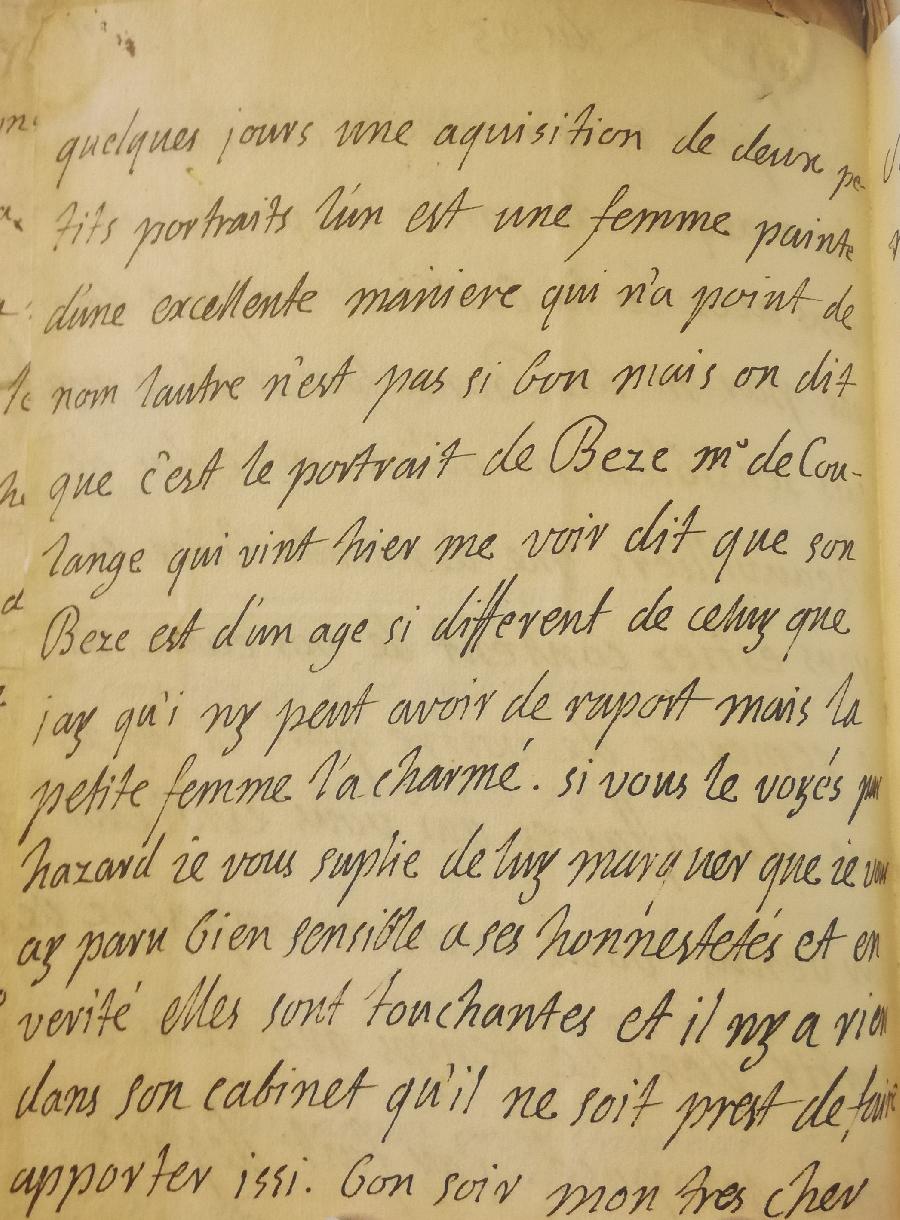 quelques jours une aquisition de deux pe-
tits portraits l'un est une femme painte
d'une excellente maniere qui n'a point de
nom lautre n'est pas si bon mais on dit
que c'est le portrait de Beze mr de Cou-
lange qui vint hier me voir dit que son
Beze est d'un age si different de celuy que
jay qu'i ny peut avoir de raport mais la
petite femme l'a charmé. si vous le voyés par
hazard ie vous suplie de luy marquer que ie vous
ay paru bien sensible a ses honnestetés et en
verité elles sont touchantes et il ny a rien
dans son cabinet qu'il ne soit prest de faire
apporter issi. bon soir mon tres cher